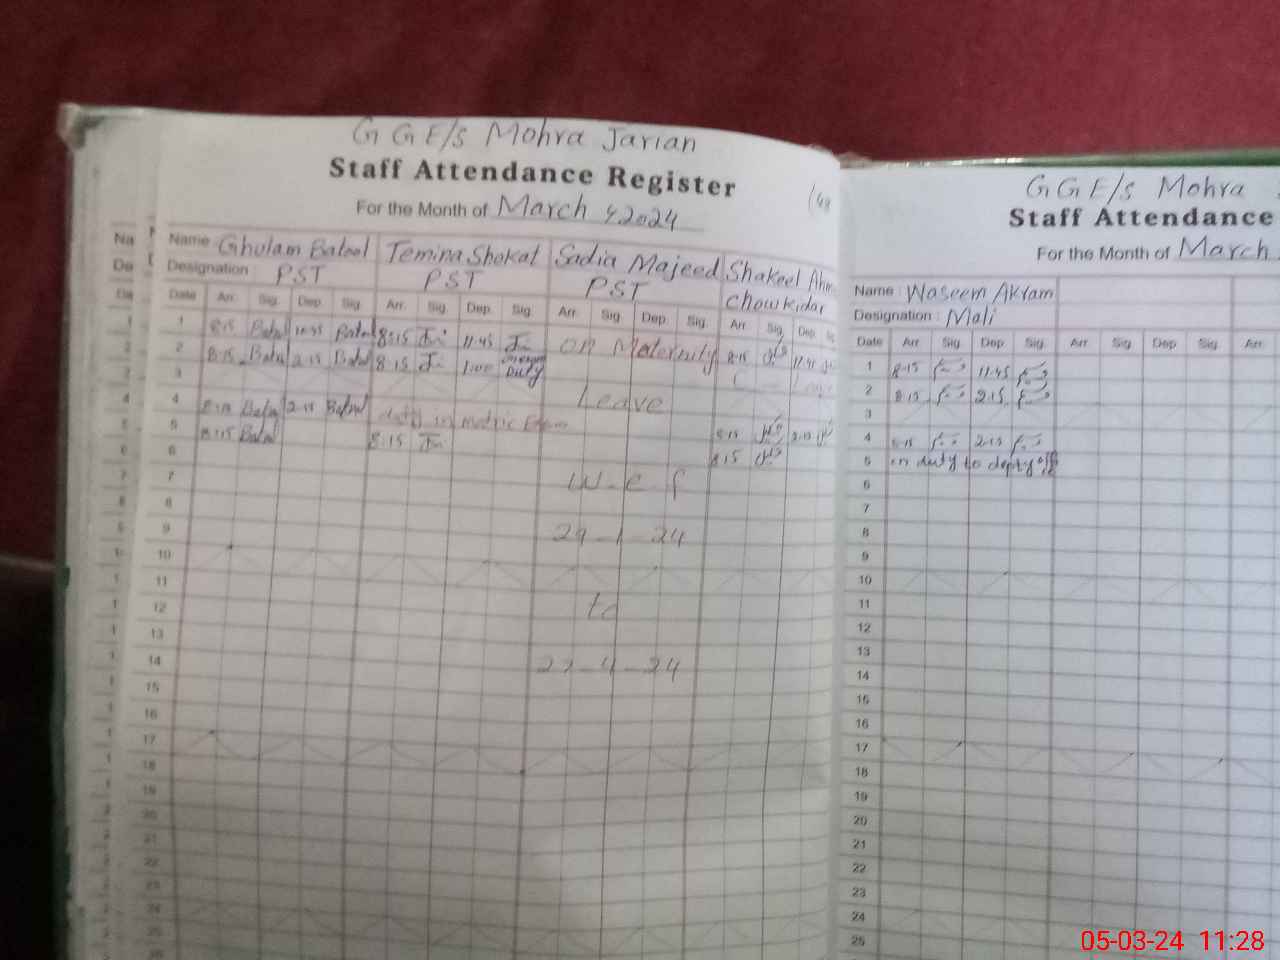 G G E/S Mohra Jarian
Staff Attendance Register
For the Month of March 2024
Name Ghulam Batool Temina Shokat Sadia Majeed Shakeel
Designation: PST PST PST Chowkidar
Date Arr. Sig. Dep. Sig. Arr. Sig. Dep. Sig. Arr. Sig. Dep. Sig. Arr. Sig. Dep.
1 8:15 Batul Batul 8:15 11:45 on Maternity 8:15 11:45
2 8:15 Batul 2:15 Batul 8:15 1:00 Duty
3 Leave
4 8:15 Batul 2:15 Batul duty in matric Exam 8:15 2:15
5 8:15 Batul 8:15 8:15
6
7 w.e.f
8
9 29-1-24
10
11
12 to
13
14 -4-24
15
16
17
18
19
20
21
22
23
24
25
G G E/S Mohra
Staff Attendance
For the Month of March
Name: Waseem Akram
Designation: Mali
Date Arr. Sig. Dep. Sig. Arr. Sig. Dep. Sig. Arr.
1 8:15 11:45
2 8:15 2:15
3
4 8:15 2:15
5 on duty to depty off
6
7
8
9
10
11
12
13
14
15
16
17
18
19
20
21
22
23
24
25
05-03-24 11:28